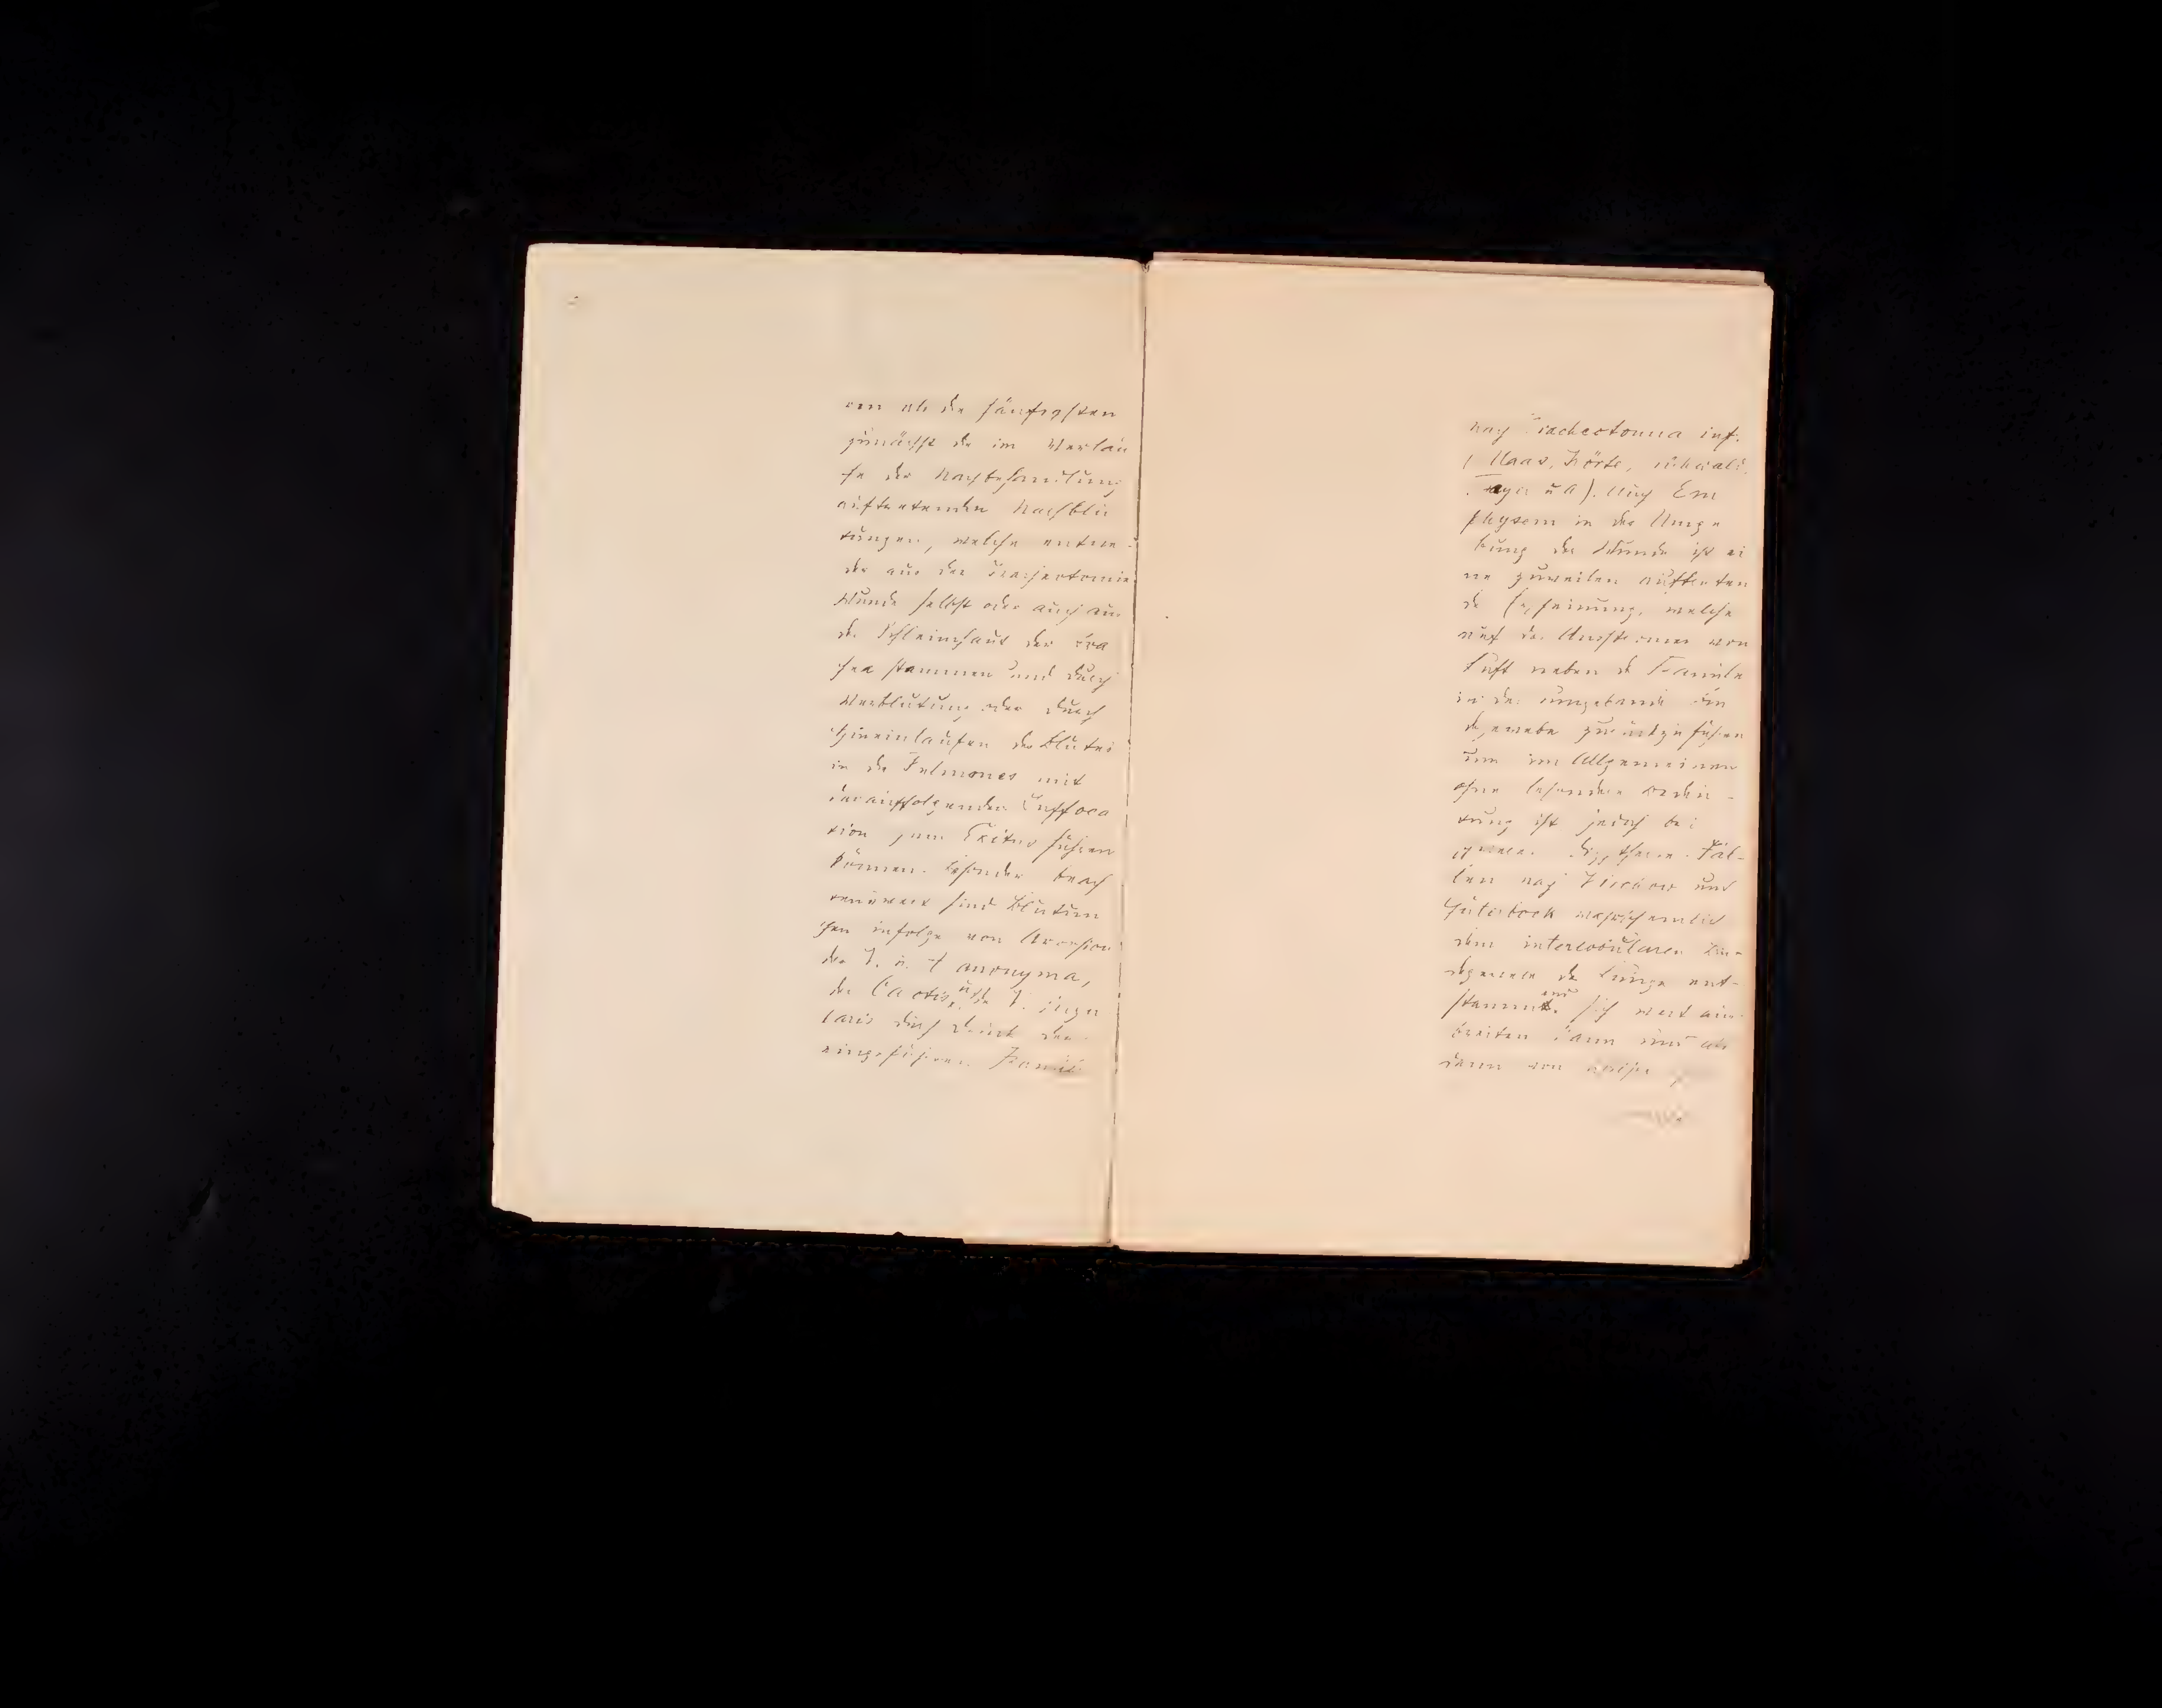 ren als die häufigsten
zunächst die im Verlau
fe der Nachbehandlung
auftretenden Nachblu
tungen, welche entwe-
der aus der Tracheotomie
Wunde selbst oder auch aus
der Schleimhaut der Tra
chea stammen und durch
Verblutung oder durch
Hineinlaufen des Blutes
in die Pulmones mit
darauffolgender Suffoca
tion zum Exitus führen
können. Besonders beach
tenswert sind Blutun
gen infolge von Arrosion
der V. u. A anonyma,
der Carotis, u. der V. jugu
laris durch Druck der
eingeführten Kanüle
nach Tracheotomia inf.
(Maas, Körte,
u A). Auch Em
physem in der Umge
bung der Wunde ist ei
ne zuweilen auftreten
de Erscheinung, welche
auf das Ausströmen von
Luft neben der Kanüle
in das umgebende Bin
degewebe zurückzuführen
und im Allgemeinen
ohne besondere Bedeu-
tung ist jedoch bei
schweren Diphtherie-Fäl-
len nach Virchow und
Güterbock wahrscheinlich
dem interlobulären Bin-
degewebe der Lunge ent-
stammt und sich weit aus
breiten kann und als
dann von